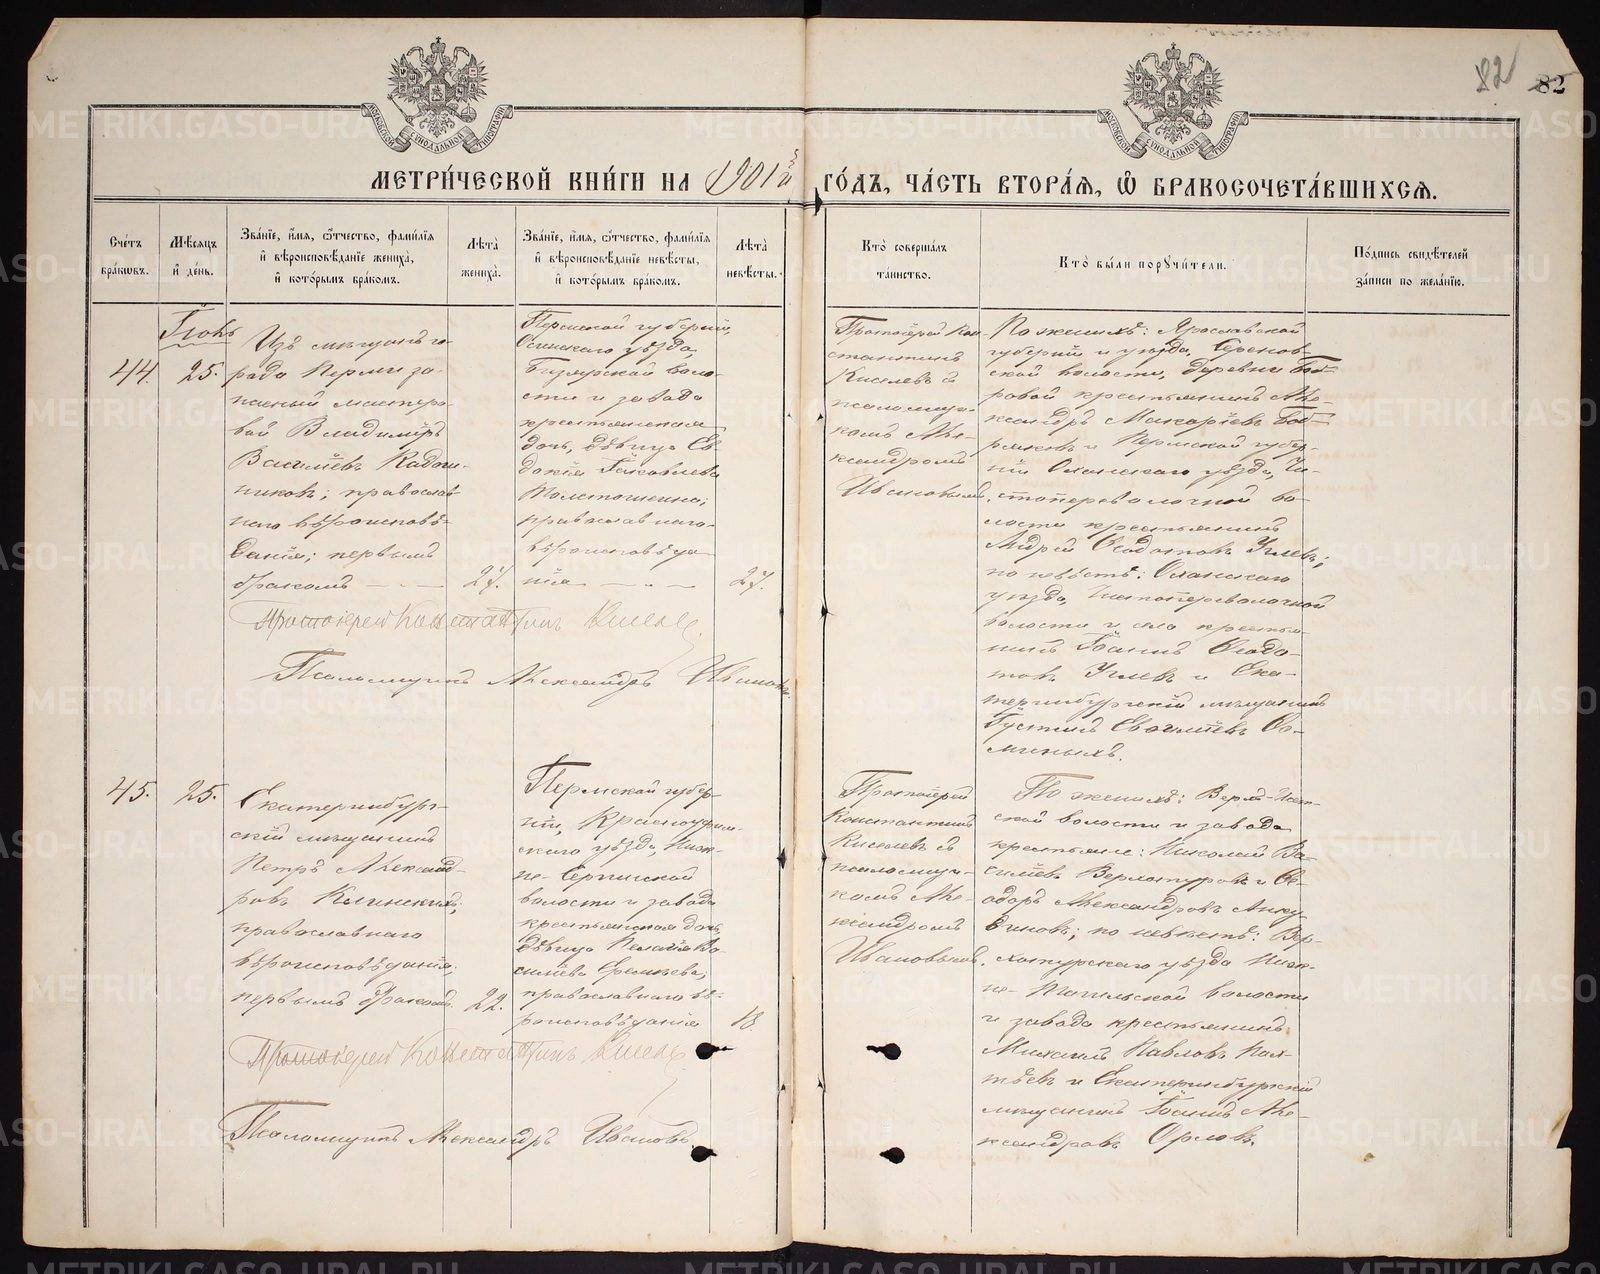 82
82
МЕТРИ́ЧЕСКОЙ КНИ́ГИ НА 1901й ГО́ДЪ, ЧА́СТЬ ВТОРА́Я, Ѿ БРАКОСОЧЕТА́ВШИХСЯ.
Сче́тъ бра́ковъ.
Мѣ́сяцъ и҆ де́нь.
Зва́нїе, и҆́мя, ѻ҆́тчество, фами́лїя и҆ вѣроисповѣ́данїе жениха̀, и҆ кото́рымъ бра́комъ.
Лѣ́та жениха̀.
Зва́нїе, и҆́мя, ѻ҆́тчество, фами́лїя и҆ вѣроисповѣ́данїе невѣ́сты, и҆ кото́рымъ бра́комъ.
Лѣ́та невѣ́сты.
Кто̀ соверша́лъ та́инство.
Кто̀ бы́ли порꙋчи́тели.
По́дпись свидѣ́телей за́писи по жела́нїю.
44.
Іюнь
25.
Изъ мѣщанъ го-
рода Перми за-
пасный мастеро-
вой Владиміръ
Васильевъ
никовъ; православ-
наго вѣроисповѣ-
данія; первымъ
бракомъ
27.
Пермской губерніи,
Осинскаго уѣзда,
Бизярской воло-
сти и завода
крестьянская
дочь, дѣвица Ев-
докія Іаковлева
православнаго
вѣроисповѣда
нія
27.
Протоіерей Кон-
стантинъ
Киселевъ съ
псаломщи-
комъ Але-
ксандромъ
Ивановымъ.
По женихѣ: Ярославской
губерніи и уѣзда,
ской волости, деревни Боб-
ровой крестьянинъ Але-
ксандръ Макаріевъ Боб-
ряковъ и Пермской губер-
ніи Оханскаго уѣзда, Чи-
стопереволочной во-
лости крестьянинъ
Андрей Ѳеодотовъ Углевъ;
по невѣстѣ: Оханскаго
уѣзда, Чистопереволочной
волости и села крестья-
нинъ Іоаннъ Ѳеодо-
товъ Углевъ и Ека-
теринбургскій мѣщанинъ
Іустинъ
Протоіерей Константинъ Киселевъ
Псаломщикъ Александръ Ивановъ.
45.
25.
Екатеринбург-
скій мѣщанинъ
Петръ Александ-
ровъ Клинскихъ;
православнаго
вѣроисповѣданія;
первымъ бракомъ.
22.
Пермской губер-
ніи, Красноуфим-
скаго уѣзда, Ниж-
не-Сергинской
волости и завода
крестьянская дочь,
дѣвица Пелагія Ва-
сильева Еремѣева;
православнаго вѣ-
роисповѣданія
18
Протоіерей
Константинъ
Киселевъ съ
псаломщи-
комъ Але-
ксандромъ
Ивановымъ.
По женихѣ: Верхъ-Исет-
ской волости и завода
крестьяне: Николай Ва-
сильевъ Верхотуровъ и Ѳе-
одоръ Александровъ Анку-
диновъ; по невѣстѣ: Вер-
хотурскаго уѣзда Ниж-
не-Тагильской волости
и завода крестьянинъ
Михаилъ Павловъ Пал-
тѣевъ и Екатеринбургскій
мѣщанинъ Іоаннъ Але-
ксандровъ Орловъ.
Протоіерей Константинъ Киселевъ
Псаломщикъ Александръ Ивановъ.
METRIKI.GASO-URAL.RU